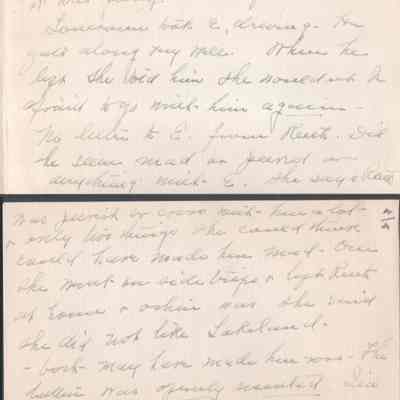 it was
Lonesome took E. driving. He
gets along very well. When he
left she told him she would not be
afraid to go with him again.
No letter to E. from Ruth. Did
he seem mad or peeved or
anything with E. She says Ruth
was peevish or cross with her a lot
& only two things she could think
could have made her mad. One
she went on side trips & left Ruth
at home & other was she said
she did not like Lakeland.
- both may have made her sore. The
letter was openly resented. Did